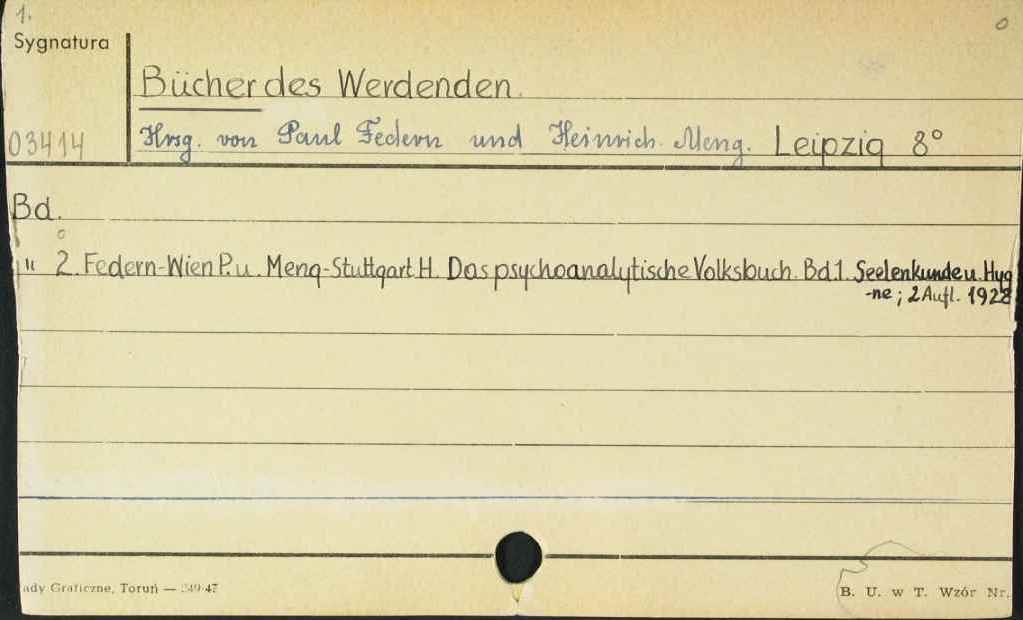 1.
Sygnatura
Bücher des Werdenden.
03414
Hrsg. von Paul Federn und Heinrich Meng. Leipzig 8°
Bd.
" 2. Federn-Wien P. u. Meng-Stuttgart H. Das psychoanalytische Volksbuch. Bd 1. Seelenkunde u. Hyg
-ne; 2 Aufl. 1928
ady Graficzne, Toruń — 249-47
B. U. w T. Wzór Nr.